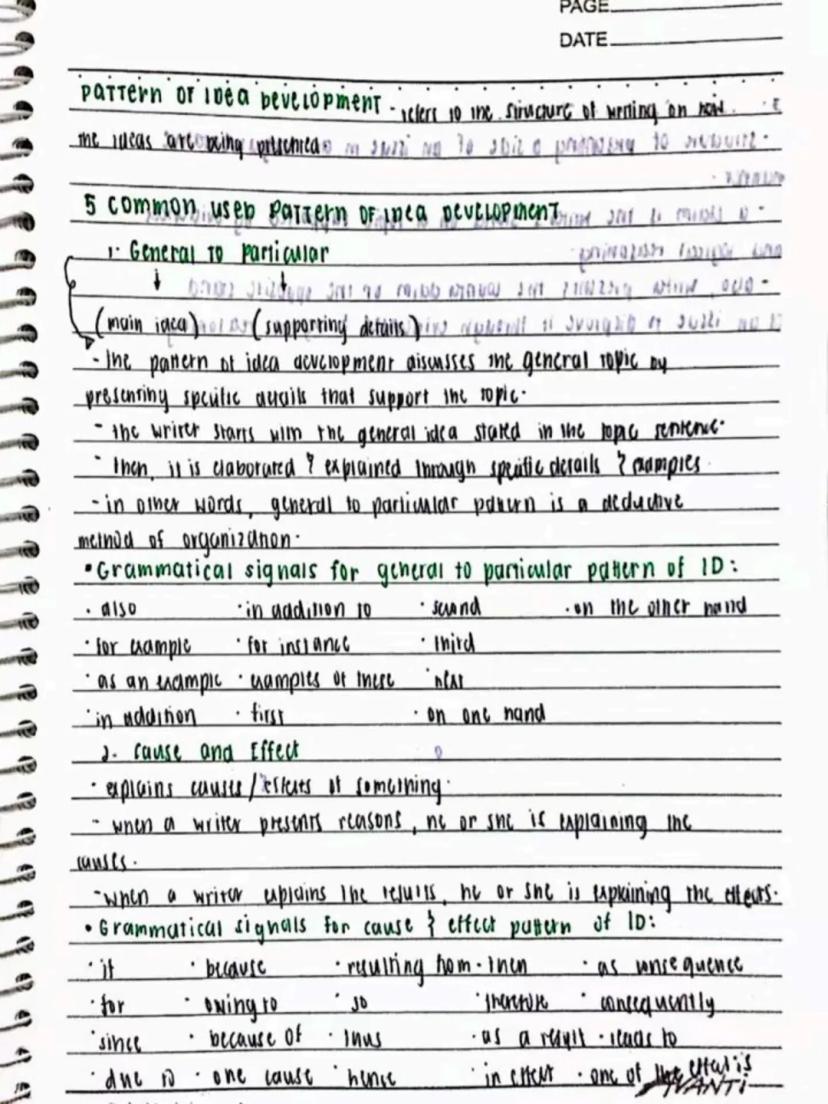 PAGE
DATE
PATTERN OF IDEA DEVELOPMENT - refers to the structure of writing on how
the ideas are being presented
5 COMMON USED PATTERN OF IDEA DEVELOPMENT
1. General to Particular
(main idea) (supporting details)
- the pattern of idea development discusses the general topic by
presenting specific details that support the topic.
- the writer starts with the general idea stated in the topic sentence.
- then, it is elaborated & explained through specific details & examples.
- in other words, general to particular pattern is a deductive
method of organization.
• Grammatical signals for general to particular pattern of ID:
• also • in addition to • second • on the other hand
• for example • for instance • third
• as an example • examples of these • next
• in addition • first • on one hand
2. Cause and Effect
• explains causes/effects of something.
- when a writer presents reasons, he or she is explaining the
causes.
- when a writer explains the results, he or she is explaining the effects.
• Grammatical signals for cause & effect pattern of ID:
• if • because • resulting from • then • as consequence
• for • owing to • so • therefore • consequently
• since • because of • thus • as a result • leads to
• due to • one cause • hence • in effect • one of the effects is